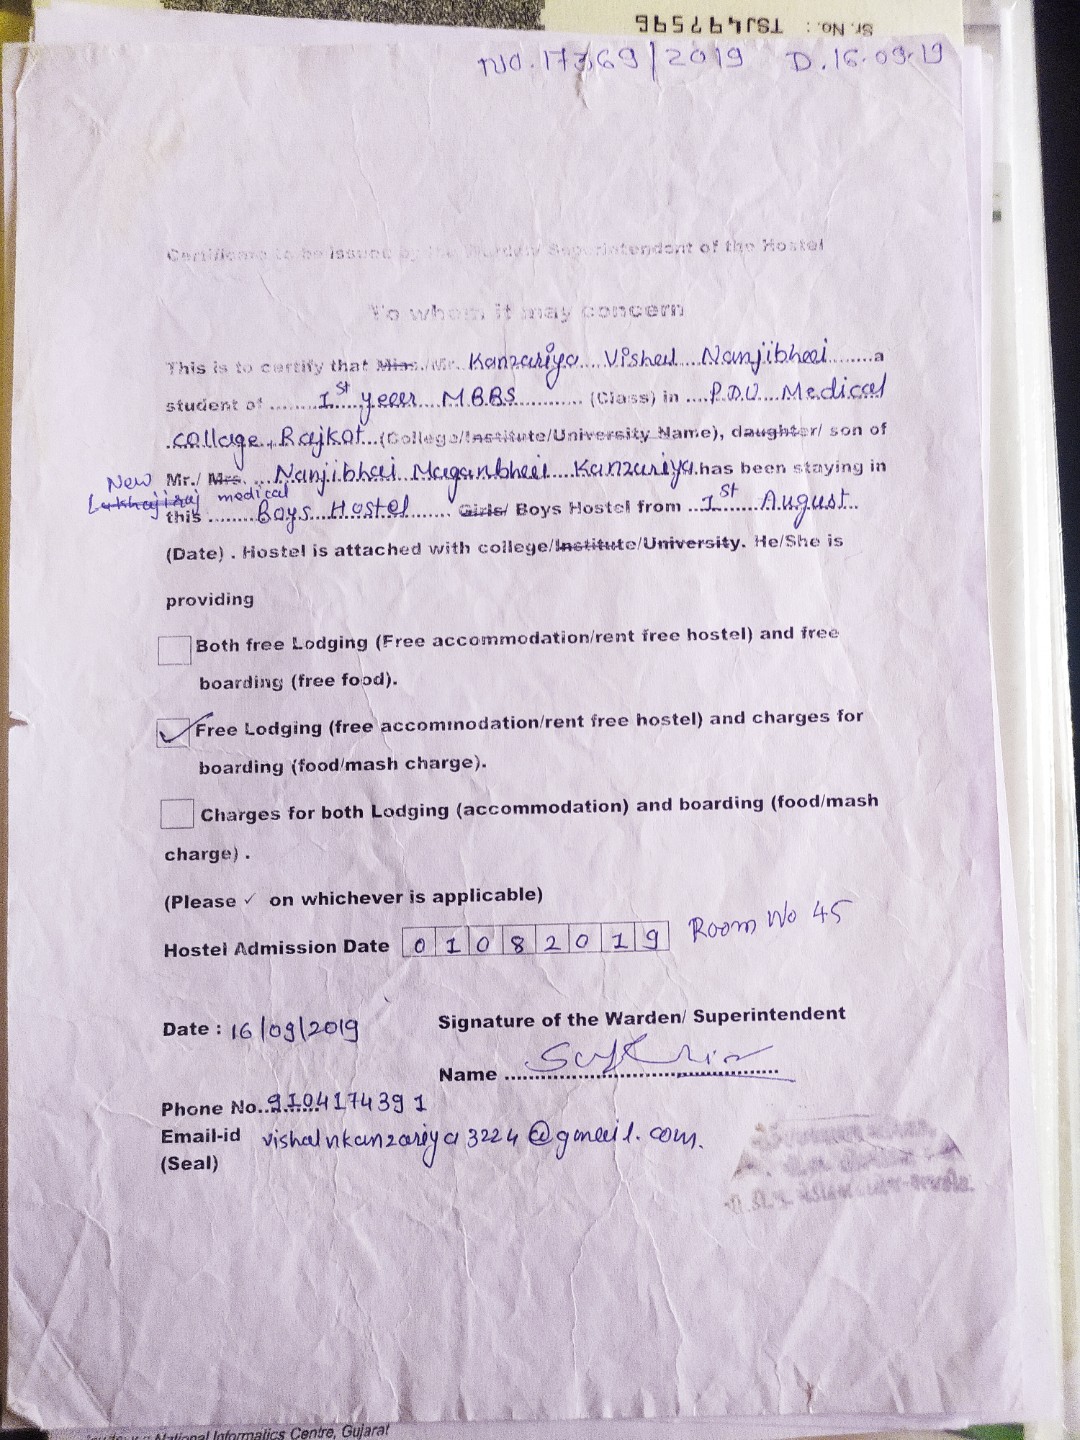 Sr. No.: TSJ497596
No. 17369/2019 D. 16-09-19
Certificate to be issued by the Warden/ Superintendent of the Hostel
To whom it may concern
This is to certify that Miss./Mr. Kanzariya Vishal Nanjibhai a
student of 1st year MBBS (Class) in P.D.U. Medical
collage, Rajkot (College/Institute/University Name), daughter/ son of
Mr./ Mrs. Nanjibhai Maganbhai Kanzariya has been staying in
New Lakhajiraj medical
this Boys Hostel Girls/ Boys Hostel from 1st August
(Date) . Hostel is attached with college/Institute/University. He/She is
providing
Both free Lodging (Free accommodation/rent free hostel) and free
boarding (free food).
✓ Free Lodging (free accommodation/rent free hostel) and charges for
boarding (food/mash charge).
Charges for both Lodging (accommodation) and boarding (food/mash
charge) .
(Please ✓ on whichever is applicable)
Hostel Admission Date 0 1 0 8 2 0 1 9 Room No 45
Date : 16/09/2019 Signature of the Warden/ Superintendent
Name
Phone No. 9104174391
Email-id vishalnkanzariya3224@gmail.com.
(Seal)
National Informatics Centre, Gujarat